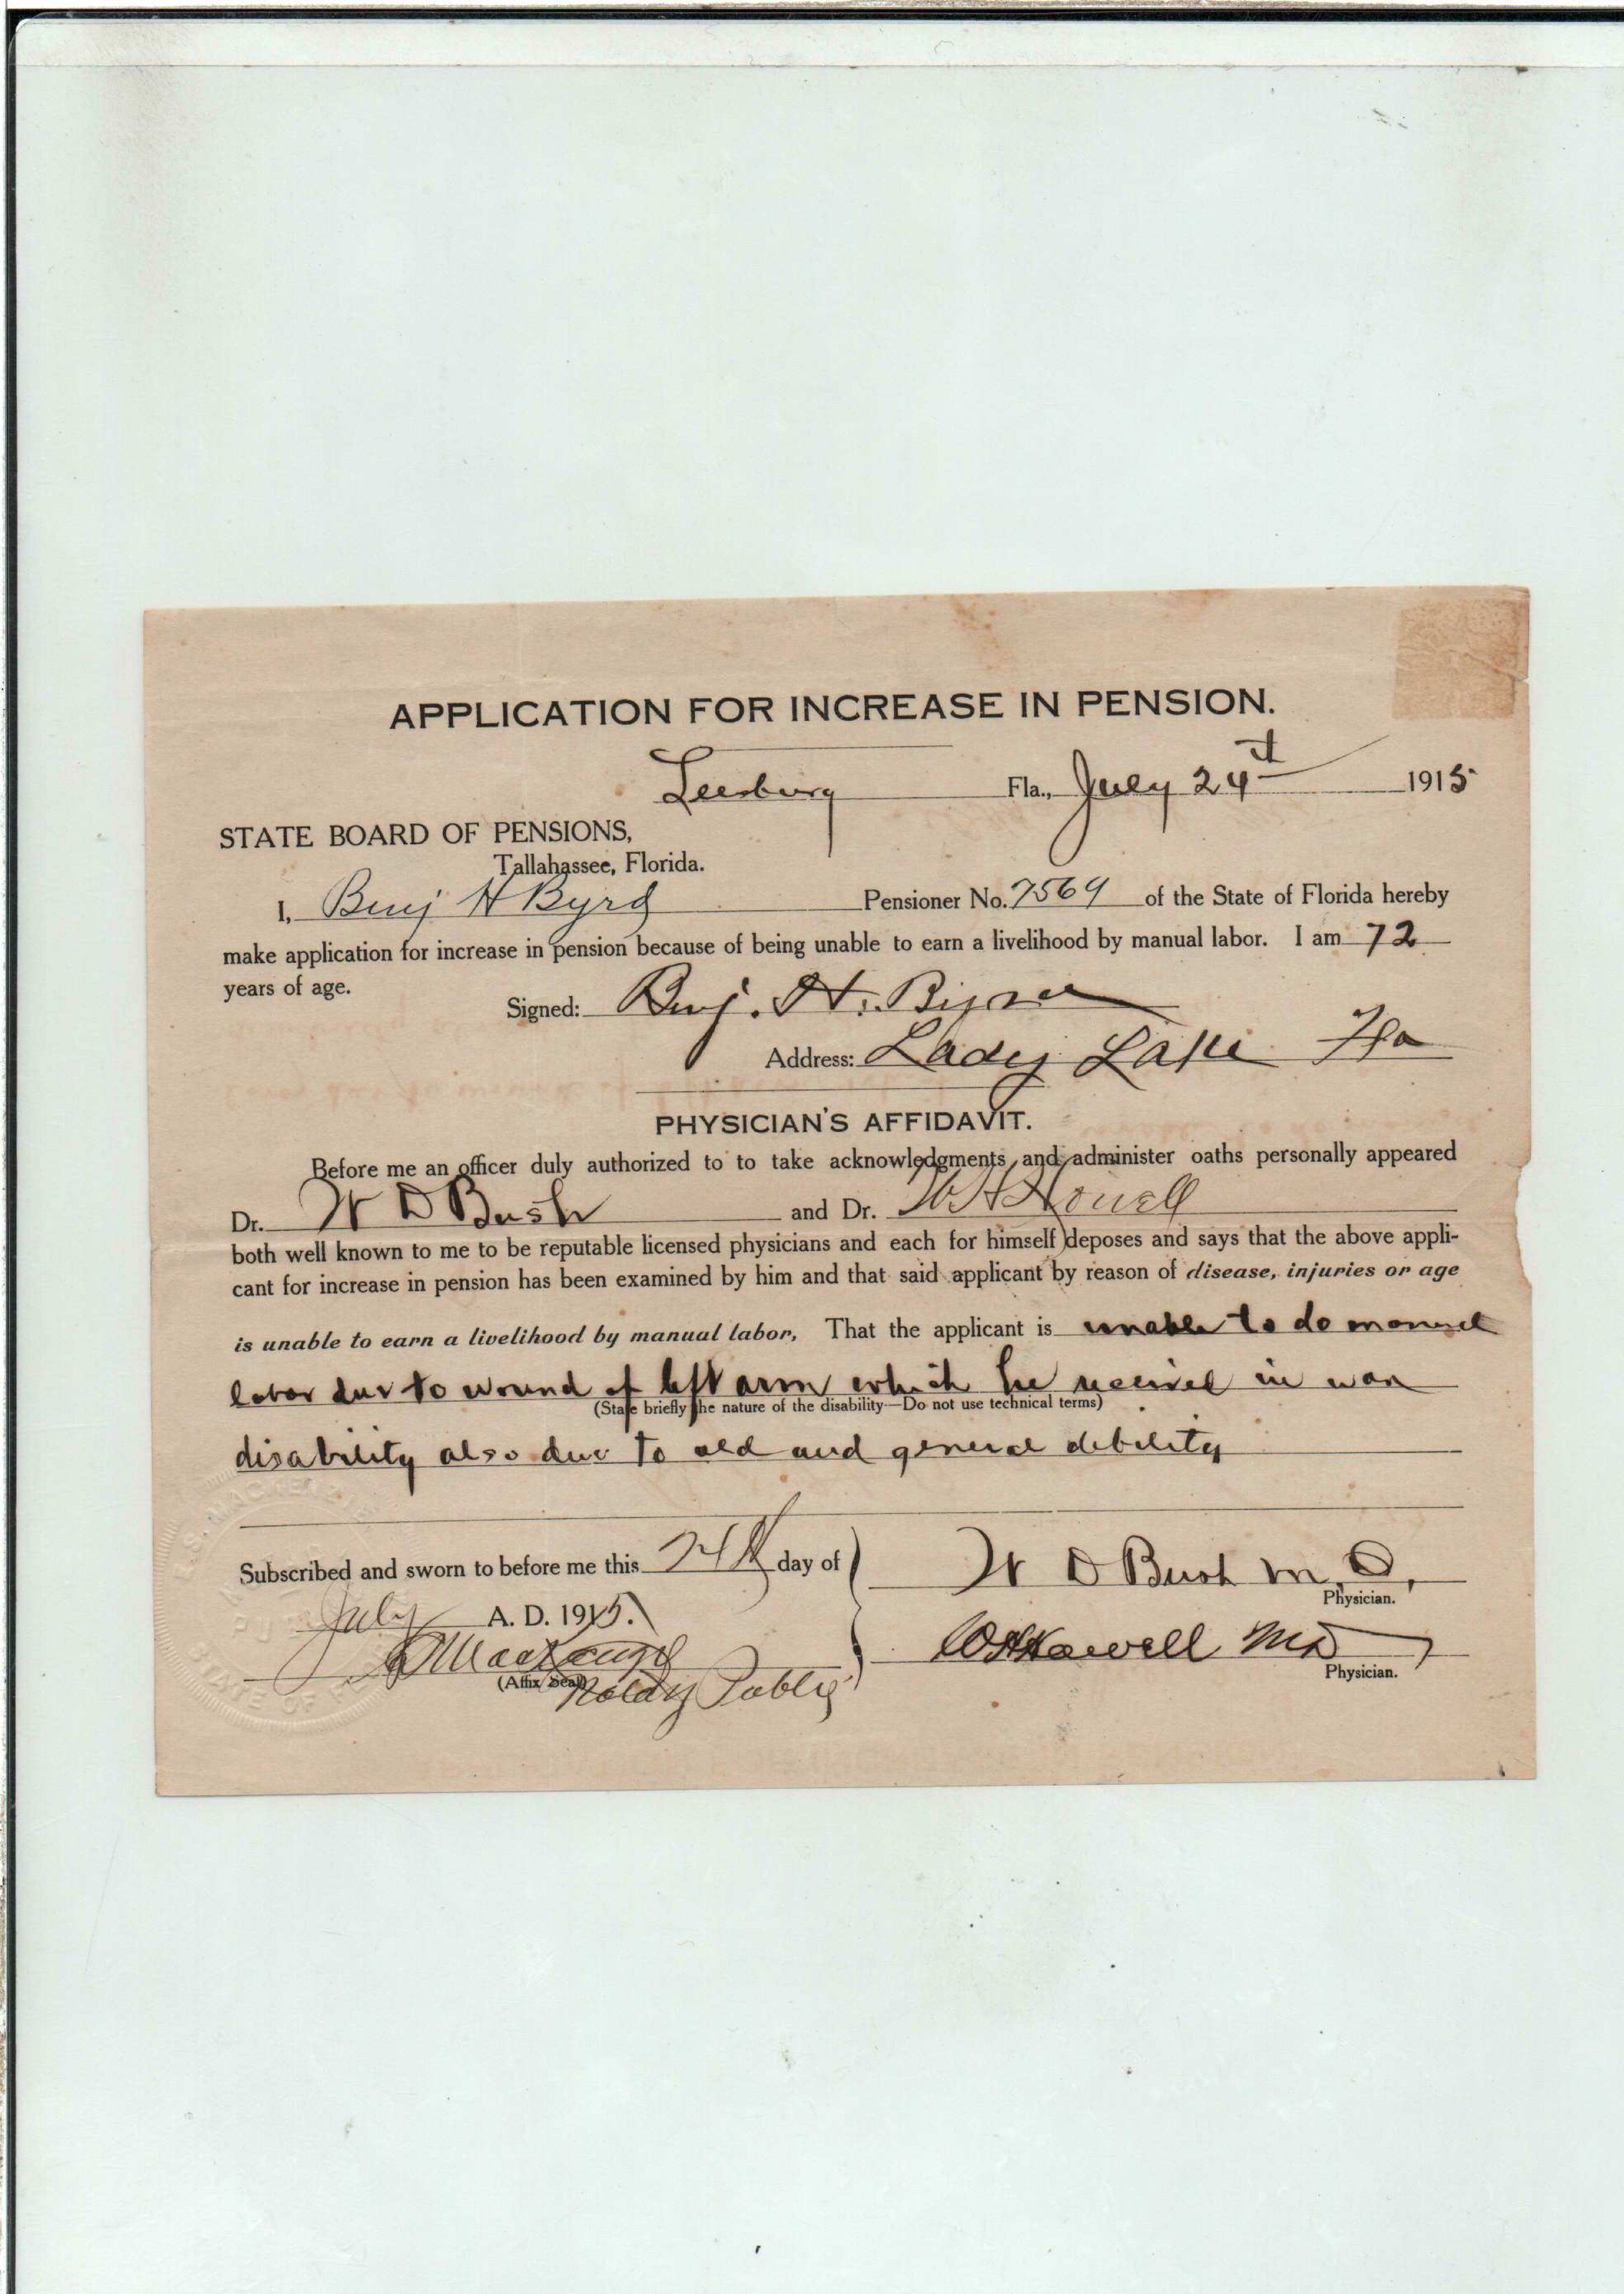 APPLICATION FOR INCREASE IN PENSION.
Leesburg Fla., July 24th 1915
STATE BOARD OF PENSIONS,
Tallahassee, Florida.
I, Benj H Byrd Pensioner No. 7564 of the State of Florida hereby
make application for increase in pension because of being unable to earn a livelihood by manual labor. I am 72
years of age.
Signed: Benj. H. Byrd
Address: Lady Lake Fla
PHYSICIAN'S AFFIDAVIT.
Before me an officer duly authorized to to take acknowledgments and administer oaths personally appeared
Dr. W D Bush and Dr. W H Howell
both well known to me to be reputable licensed physicians and each for himself deposes and says that the above appli-
cant for increase in pension has been examined by him and that said applicant by reason of disease, injuries or age
is unable to earn a livelihood by manual labor, That the applicant is unable to do manuel
labor due to wound of left arm which he received in war
(State briefly the nature of the disability—Do not use technical terms)
disability also due to old and general debility
Subscribed and sworn to before me this 24th day of
July A. D. 1915.
W D Bush M D,
Physician.
MacKenzie
(Affix Seal)
Notary Public
W H Howell MD
Physician.